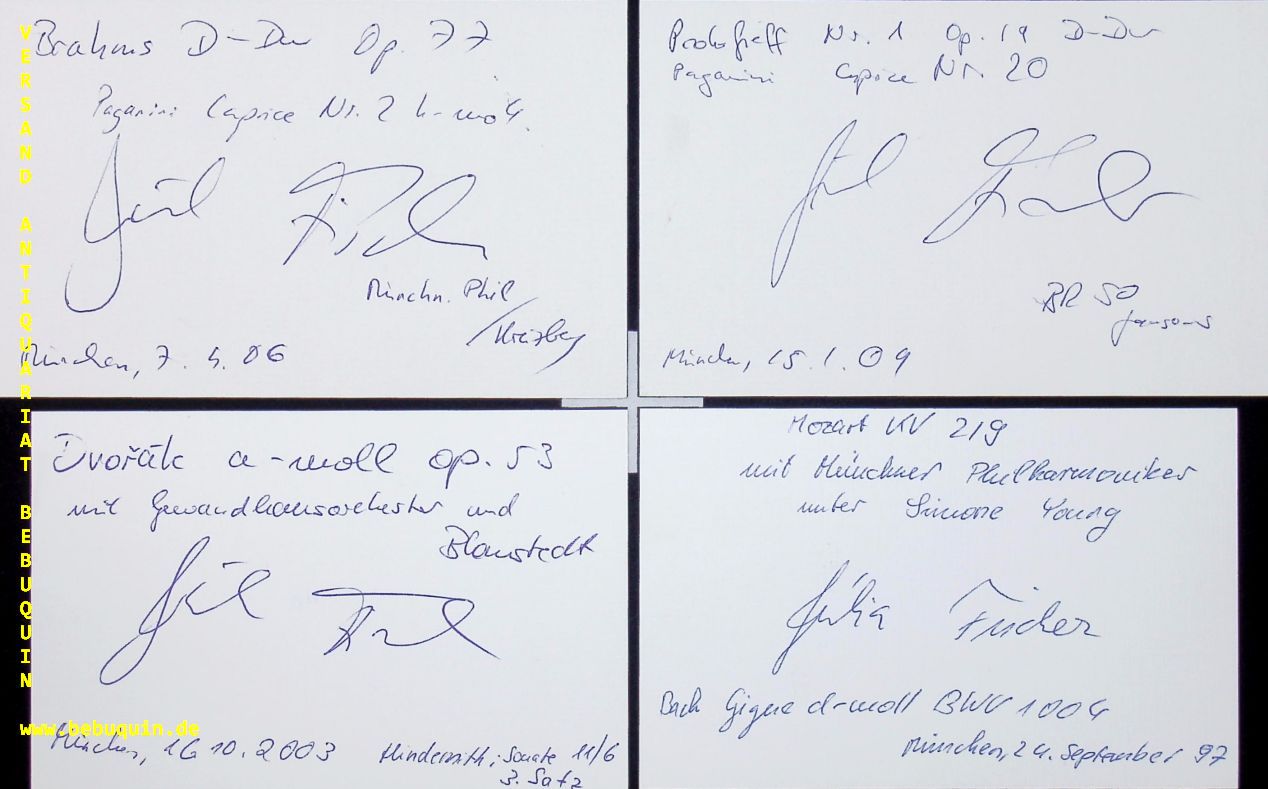 Brahms D-Dur Op. 77
Paganini Caprice Nr. 2 h-moll
Münchn. Phil
/Kreizberg
München, 7. 4. 06
Prokofieff Nr. 1 Op. 19 D-Dur
Paganini Caprice Nr. 20
BR SO
Jansons
München, 15.1.09
Dvořák a-moll op. 53
mit Gewandhausorchester und
Blomstedt
München, 16 10. 2003
Hindemith; Sonate 11/6
3. Satz
Mozart KV 219
mit Münchner Philharmoniker
unter Simone Young
Julia Fischer
Bach Gigue d-moll BWV 1004
München, 24. September 97
VERSAND ANTIQUARIAT BEBUQUIN
www.bebuquin.de